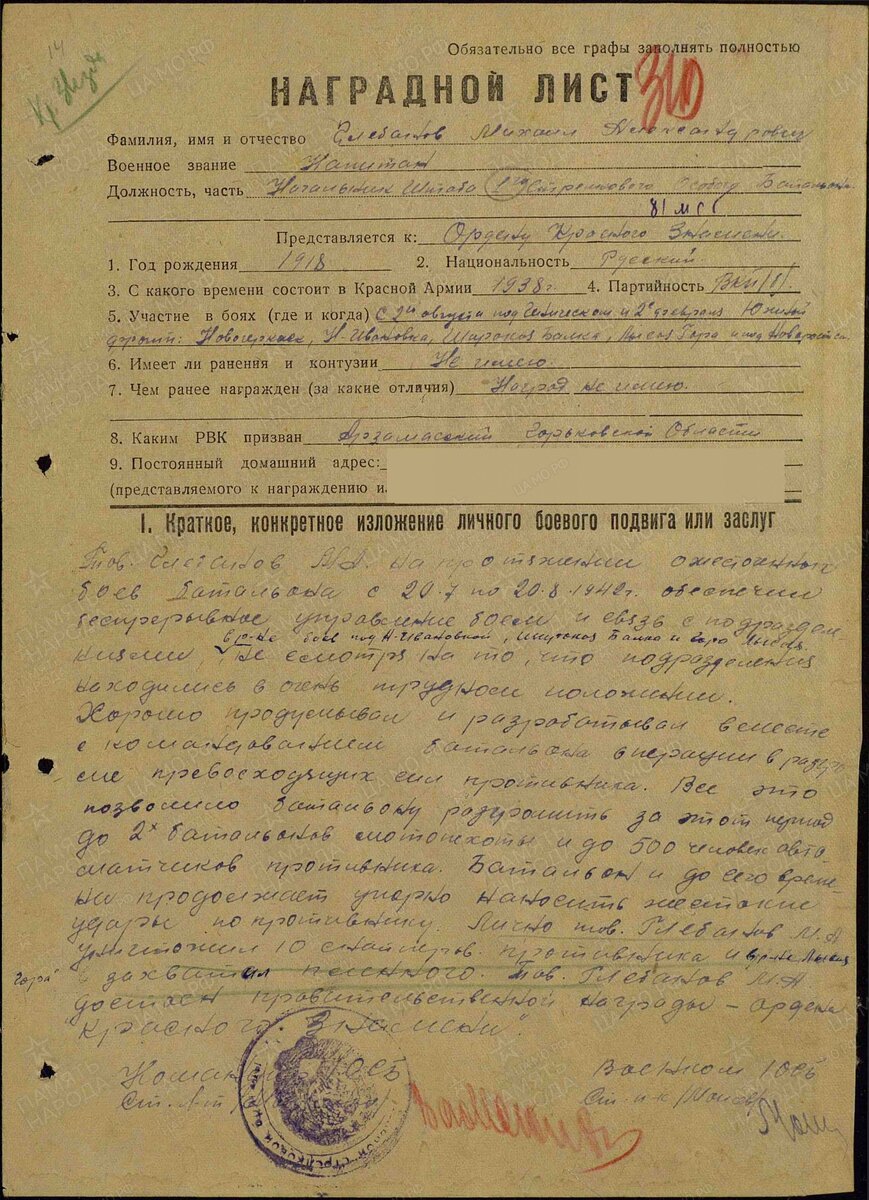 14
Кр Звезда
Обязательно все графы заполнять полностью
НАГРАДНОЙ ЛИСТ 310
Фамилия, имя и отчество Глебанов Михаил Александрович
Военное звание Капитан
Должность, часть Начальник Штаба 1го Стрелкового Особого Батальона
81 мсб
Представляется к: Ордену Красного Знамени.
1. Год рождения 1918 2. Национальность Русский.
3. С какого времени состоит в Красной Армии 1938г. 4. Партийность ВКП/б/
5. Участие в боях (где и когда) С 2го августа под и 2е февраля Южный
фронт: Новочеркаск, Н-Ивановка, Широкая Балка, Лысая Гора и под
6. Имеет ли ранения и контузии Не имею.
7. Чем ранее награжден (за какие отличия) Наград не имею.
8. Каким РВК призван Арзамасский Горьковской Области
9. Постоянный домашний адрес:
(представляемого к награждению и
I. Краткое, конкретное изложение личного боевого подвига или заслуг
Тов. Глебанов М.А. на протяжении
боев батальона с 20.7 по 20.8.1942г. обеспечил
беспрерывное управление боем и связь с подразделе-
в р-не боев под Н-Ивановкой, Широкая Балка и гора Лысая.
ниями, не смотря на то, что подразделения
находились в очень трудном положении.
Хорошо продумывал и разробатывал вместе
с командованием батальона операции в разгро-
ме превосходящих сил противника. Все это
позволило батальону разгромить за этот период
до 2х батальонов мотопехоты и до 500 человек авто
матчиков противника. Батальон и до сего време-
ни продолжает упорно наносить жестокие
удары по противнику. Лично тов. Глебанов М.А
уничтожил 10 снайперов противника и в р-не Лысая
гора" захватил пленного. Тов. Глебанов М.А
достоен правительственной награды – ордена
"Красного Знамени".
ОСБ Военком 1 ОСБ